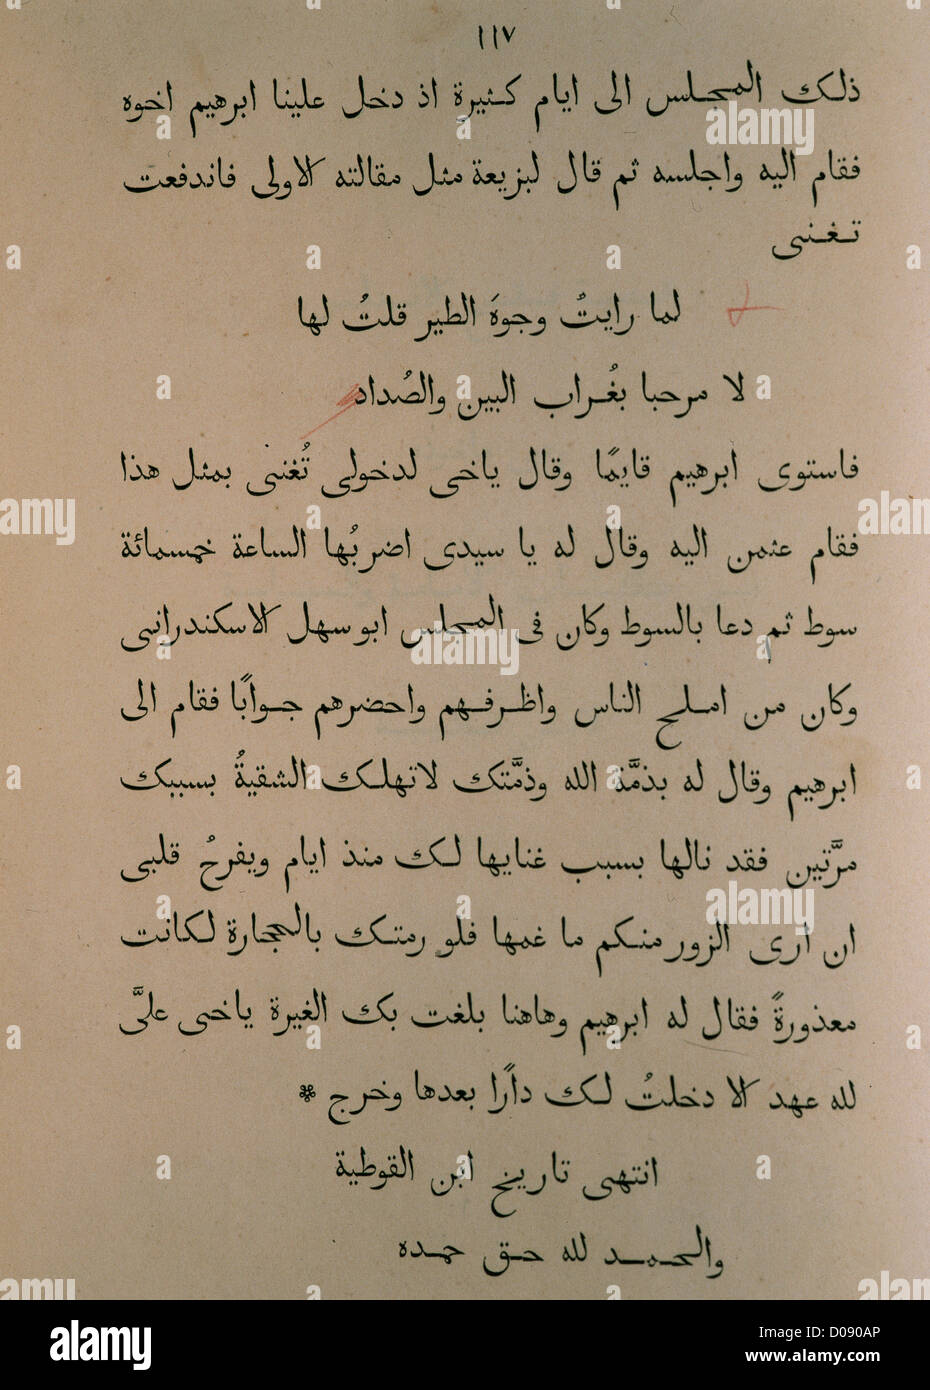 ١١٧
ذلك المجلس الى ايام كثيرة اذ دخل علينا ابرهيم اخوه
فقام اليه واجلسه ثم قال لبزيعة مثل مقالته الاولى فاندفعت
تغنى
لما رايتُ وجوهَ الطير قلتُ لها
لا مرحبا بغُراب البين والصُداد
فاستوى ابرهيم قايمًا وقال ياخى لدخولى تُغنى بمثل هذا
فقام عثمن اليه وقال له يا سيدى اضربُها الساعة خمسمائة
سوط ثم دعا بالسوط وكان فى المجلس ابو سهل الاسكندرانى
وكان من املح الناس واظرفهم واحضرهم جوابًا فقام الى
ابرهيم وقال له بذمَّة الله وذمَّتك لا تهلك الشقيةُ بسببك
مرَّتين فقد نالها بسبب غنايها لك منذ ايام ويفرحُ قلبى
ان ارى الزور منكم ما غمها فلو رمتك بالحجارة لكانت
معذورةً فقال له ابرهيم وهاهنا بلغت بك الغيرة ياخى علىَّ
لله عهد الا دخلتُ لك دارًا بعدها وخرج *
انتهى تاريخ ابن القوطية
والحمد لله حق حمده
alamy
Image ID: D090AP
www.alamy.com